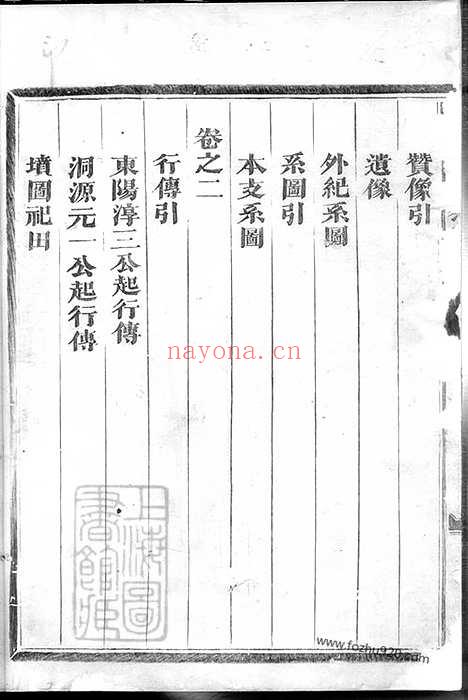 贊像引
遺像
外紀系圖
系圖引
本支系圖
卷之二
行傳引
東陽淳三公起行傳
洞源元一公起行傳
墳圖祀田
nayona.cn
上海圖書館藏
www.fozhu920.com